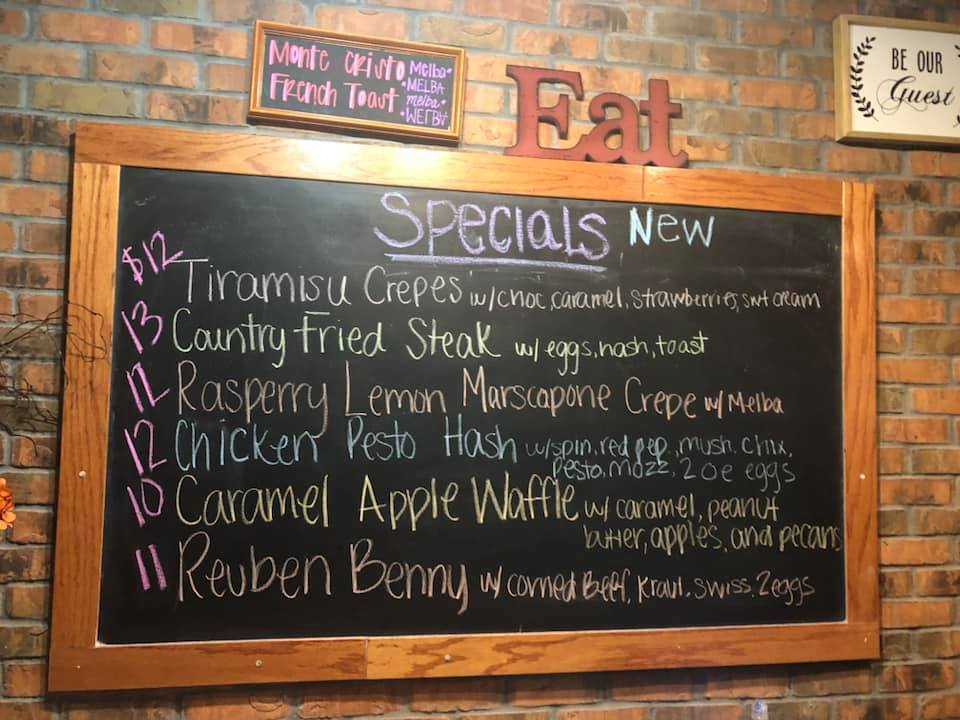 Monte Cristo
French Toast
Melba
MELBA
melba
MELBA
Eat
BE OUR
Guest
Specials New
$12 Tiramisu Crepes w/choc, caramel, strawberries, swt cream
13 Country Fried Steak w/ eggs, hash, toast
12 Rasperry Lemon Marscapone Crepe w/ Melba
12 Chicken Pesto Hash w/spin, red pep, mush, chix,
pesto, mozz, 2 oe eggs
10 Caramel Apple Waffle w/ caramel, peanut
butter, apples, and pecans
11 Reuben Benny w/ corned Beef, kraut, swiss, 2eggs